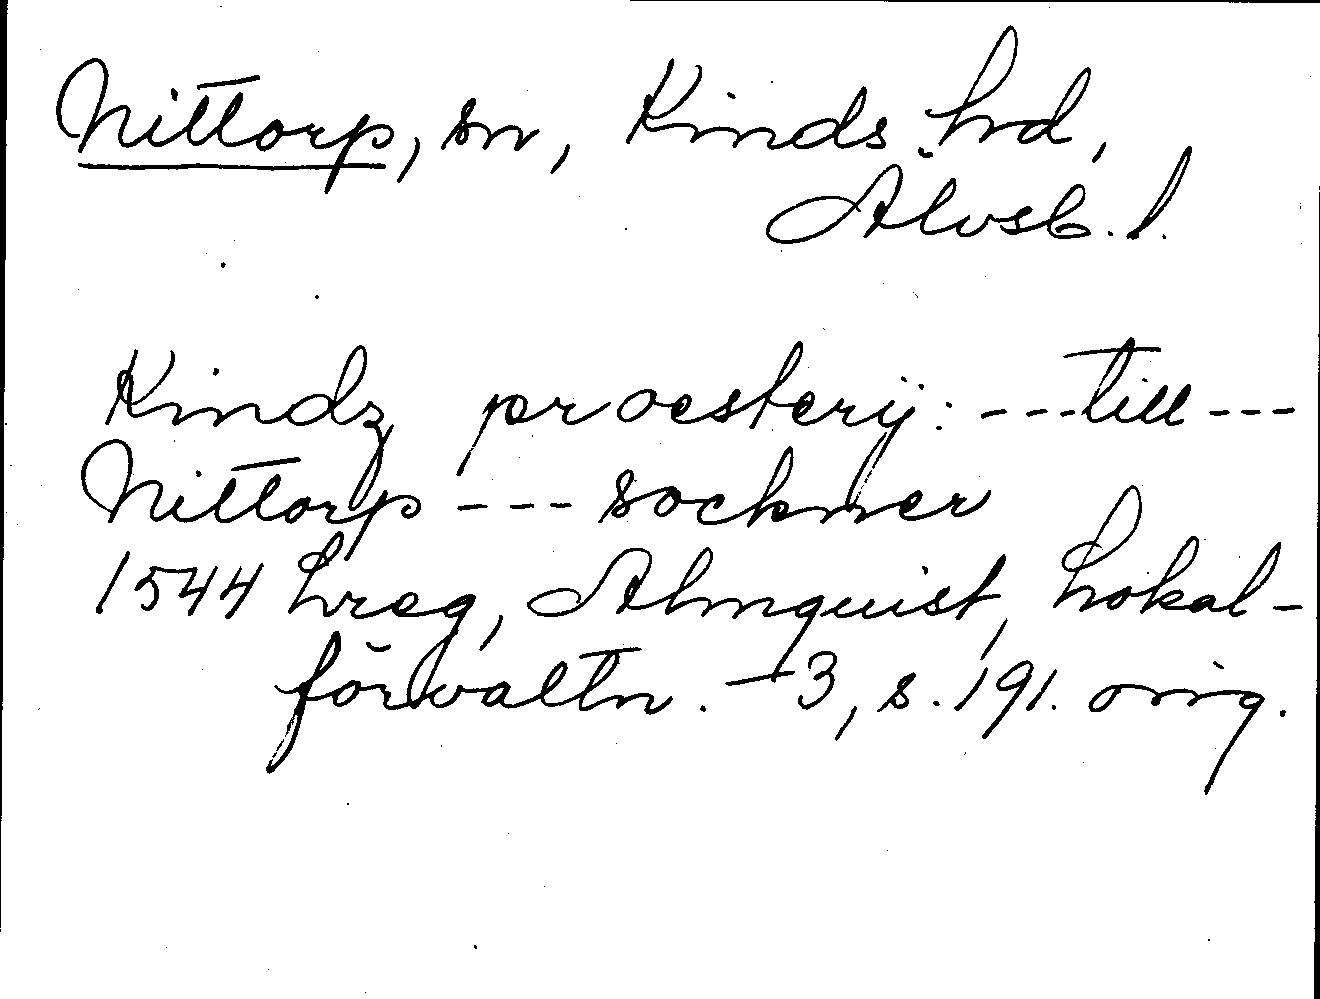 Nittorp, sn, Kinds hrd,
Älvsb. l.
Kindz proesterÿ: --- till ---
Nittorp --- sockner
1544 Lreg, Almquist, Lokal-
förvaltn. 3, s. 191. orig.